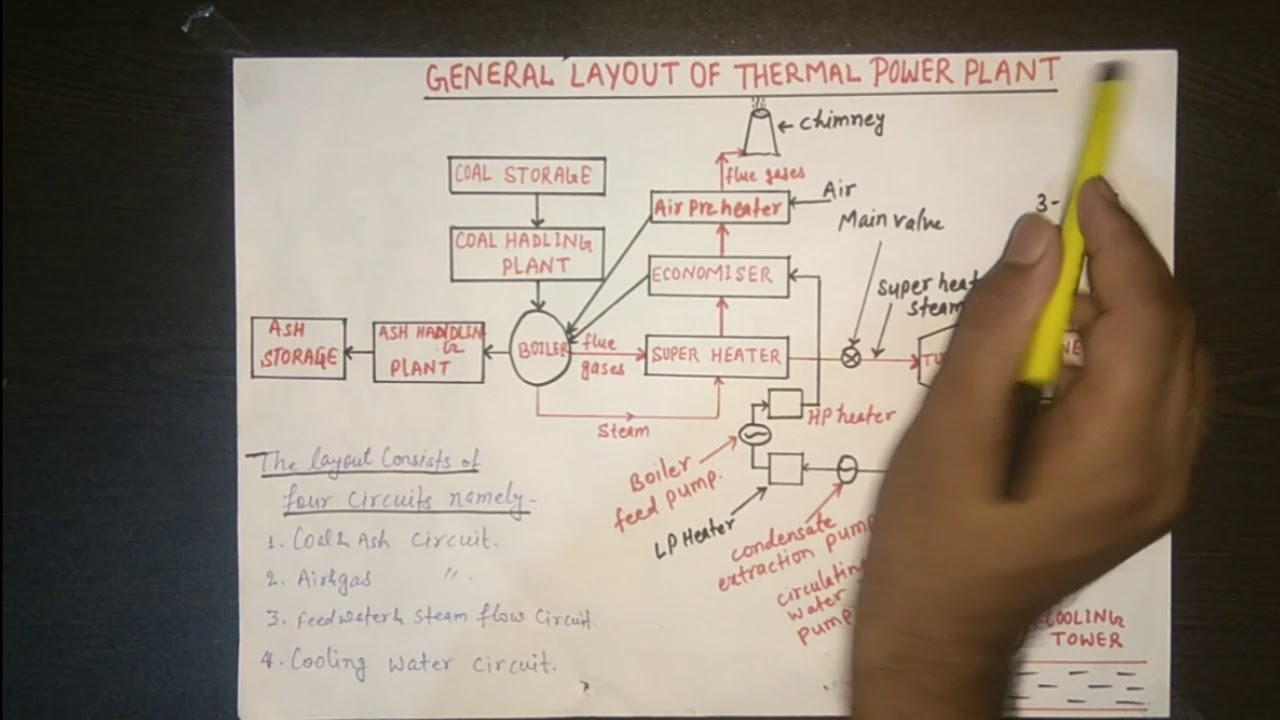 GENERAL LAYOUT OF THERMAL POWER PLANT
chimney
flue gases
COAL STORAGE
Air Preheater
Air
3-
Main valve
COAL HADLING
PLANT
ECONOMISER
Super heat
steam
ASH
STORAGE
ASH HANDLING
PLANT
BOILER
flue
gases
SUPER HEATER
Steam
HP heater
Boiler
feed pump.
LP Heater
condensate
extraction pump
circulatin
water
pump
The layout Consists of
four circuits namely-
1. Coal & Ash circuit.
2. Air & gas  〃.
3. feed water & steam flow circuit.
4. Cooling water circuit.
COOLING
TOWER